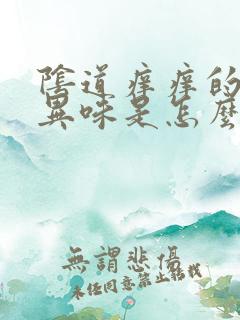 陰道痒痒的
異味是怎麼
無謂悲傷
未經同意禁止轉載